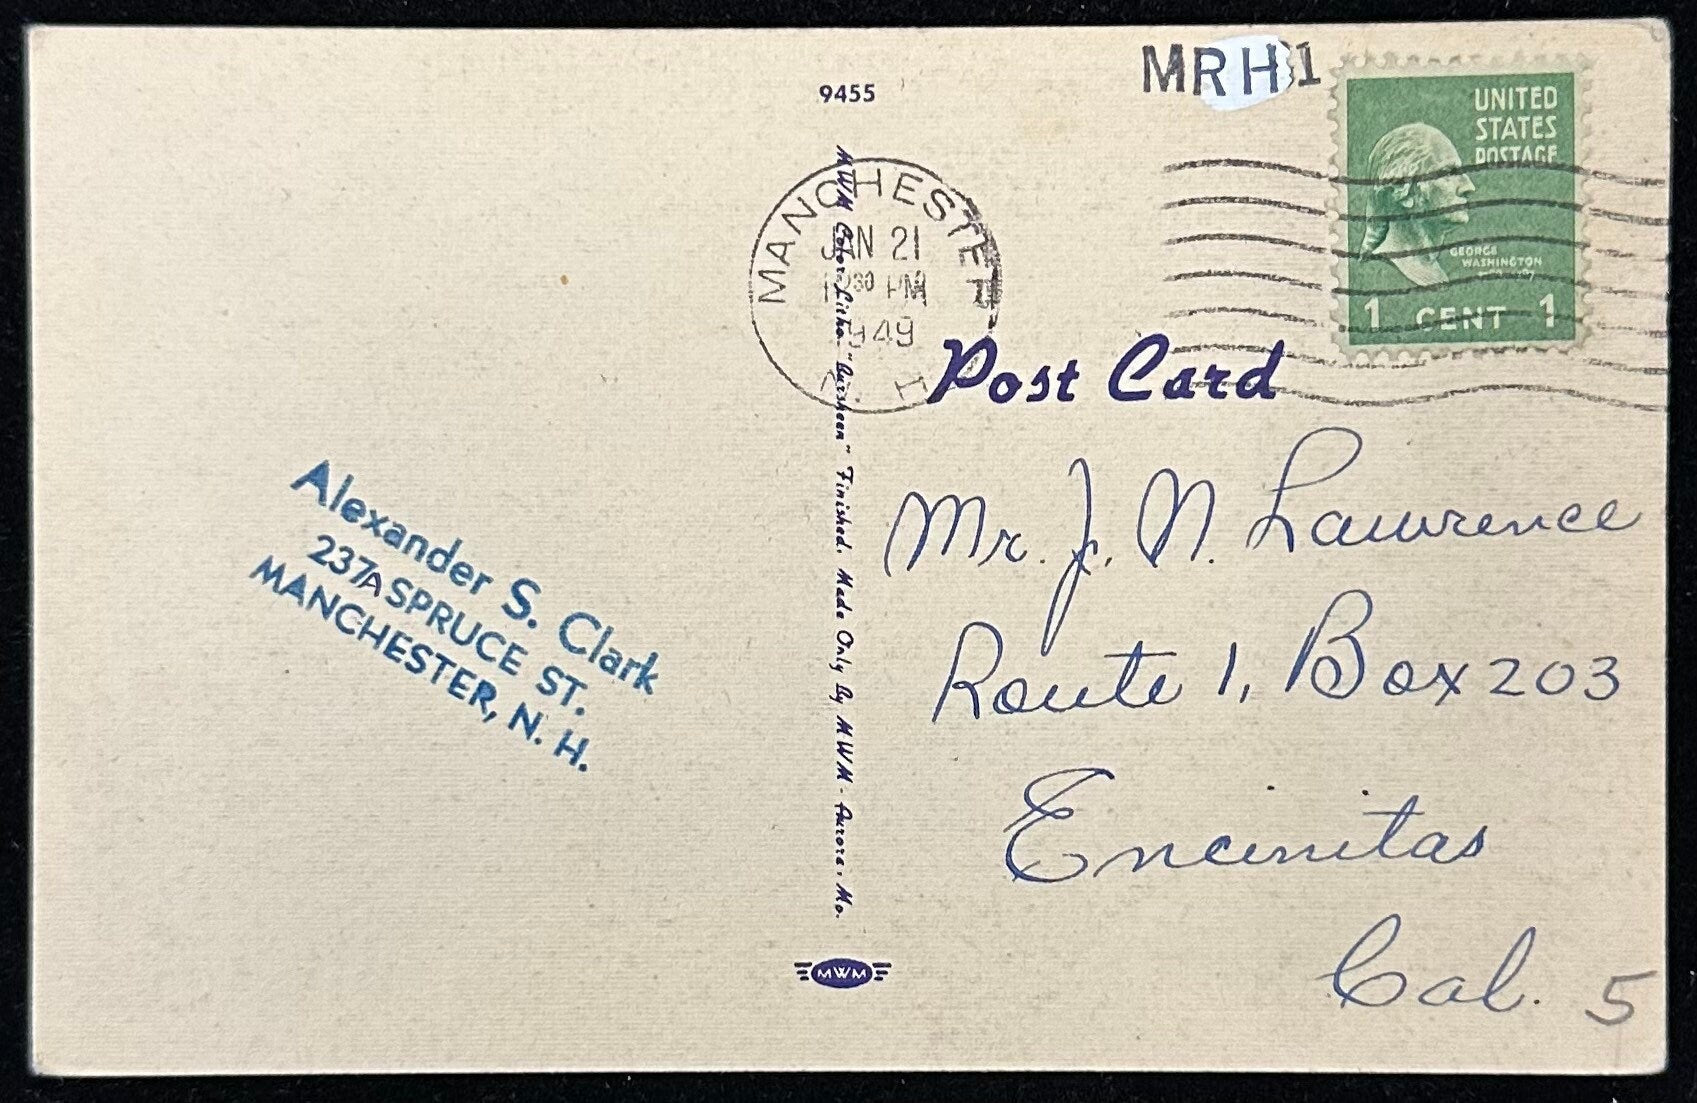 9455
MRH1
UNITED
STATES
POSTAGE
GEORGE
WASHINGTON
1 CENT 1
MANCHESTER
JAN 21
30 PM
1949
Post Card
MWM Color-Litho "Bursheen" Finished. Made Only By MWM - Aurora, Mo.
Alexander S. Clark
237A SPRUCE ST.
MANCHESTER, N. H.
Mr. J. N. Lawrence
Route 1, Box 203
Encinitas
Cal.
5
MWM